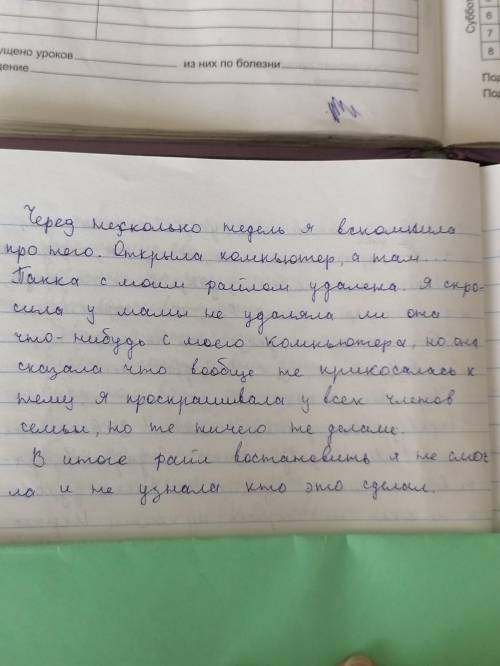 ущено уроков из них по болезни
дение
Суббот
6
7
8
Под
По
Черед несколько недель я вспомнила
про него. Открыла компьютер, а там...
Папка с моим файлом удалена. Я спро-
сила у мамы не удаляла ли она
что-нибудь с моего компьютера, но она
сказала что вообще не прикосалась к
нему. Я проспрашивала у всех членов
семьи, но те ничего не делали.
В итоге файл востановить я не смог
ла и не узнала кто это сделал.